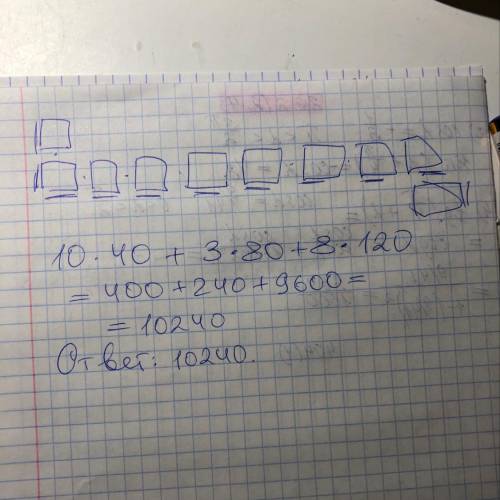 10·40 + 3·80+8·120
= 400+240+9600=
= 10240
Ответ: 10240.